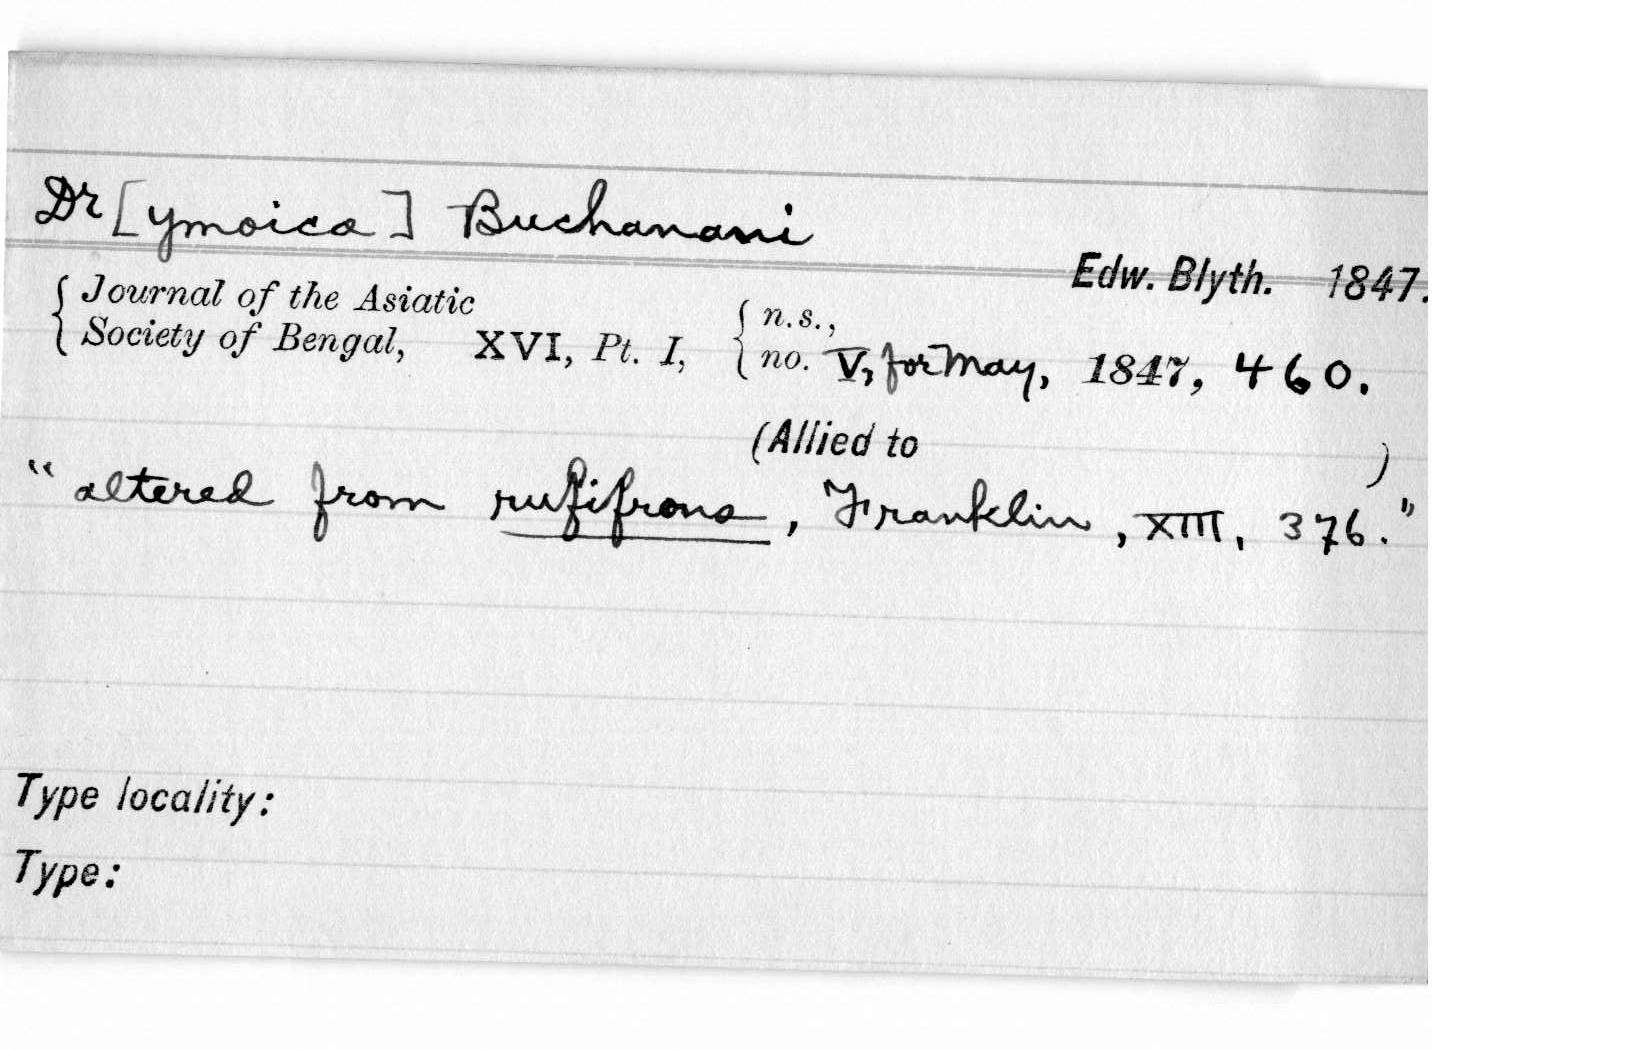 Dr[ymoica] Buchanani
Edw. Blyth. 1847.
{ Journal of the Asiatic { n.s.,
{ Society of Bengal, XVI, Pt. I, { no. V, for May, 1847, 460.
(Allied to )
"altered from rufifrons, Franklin, XIII, 376."
Type locality:
Type: